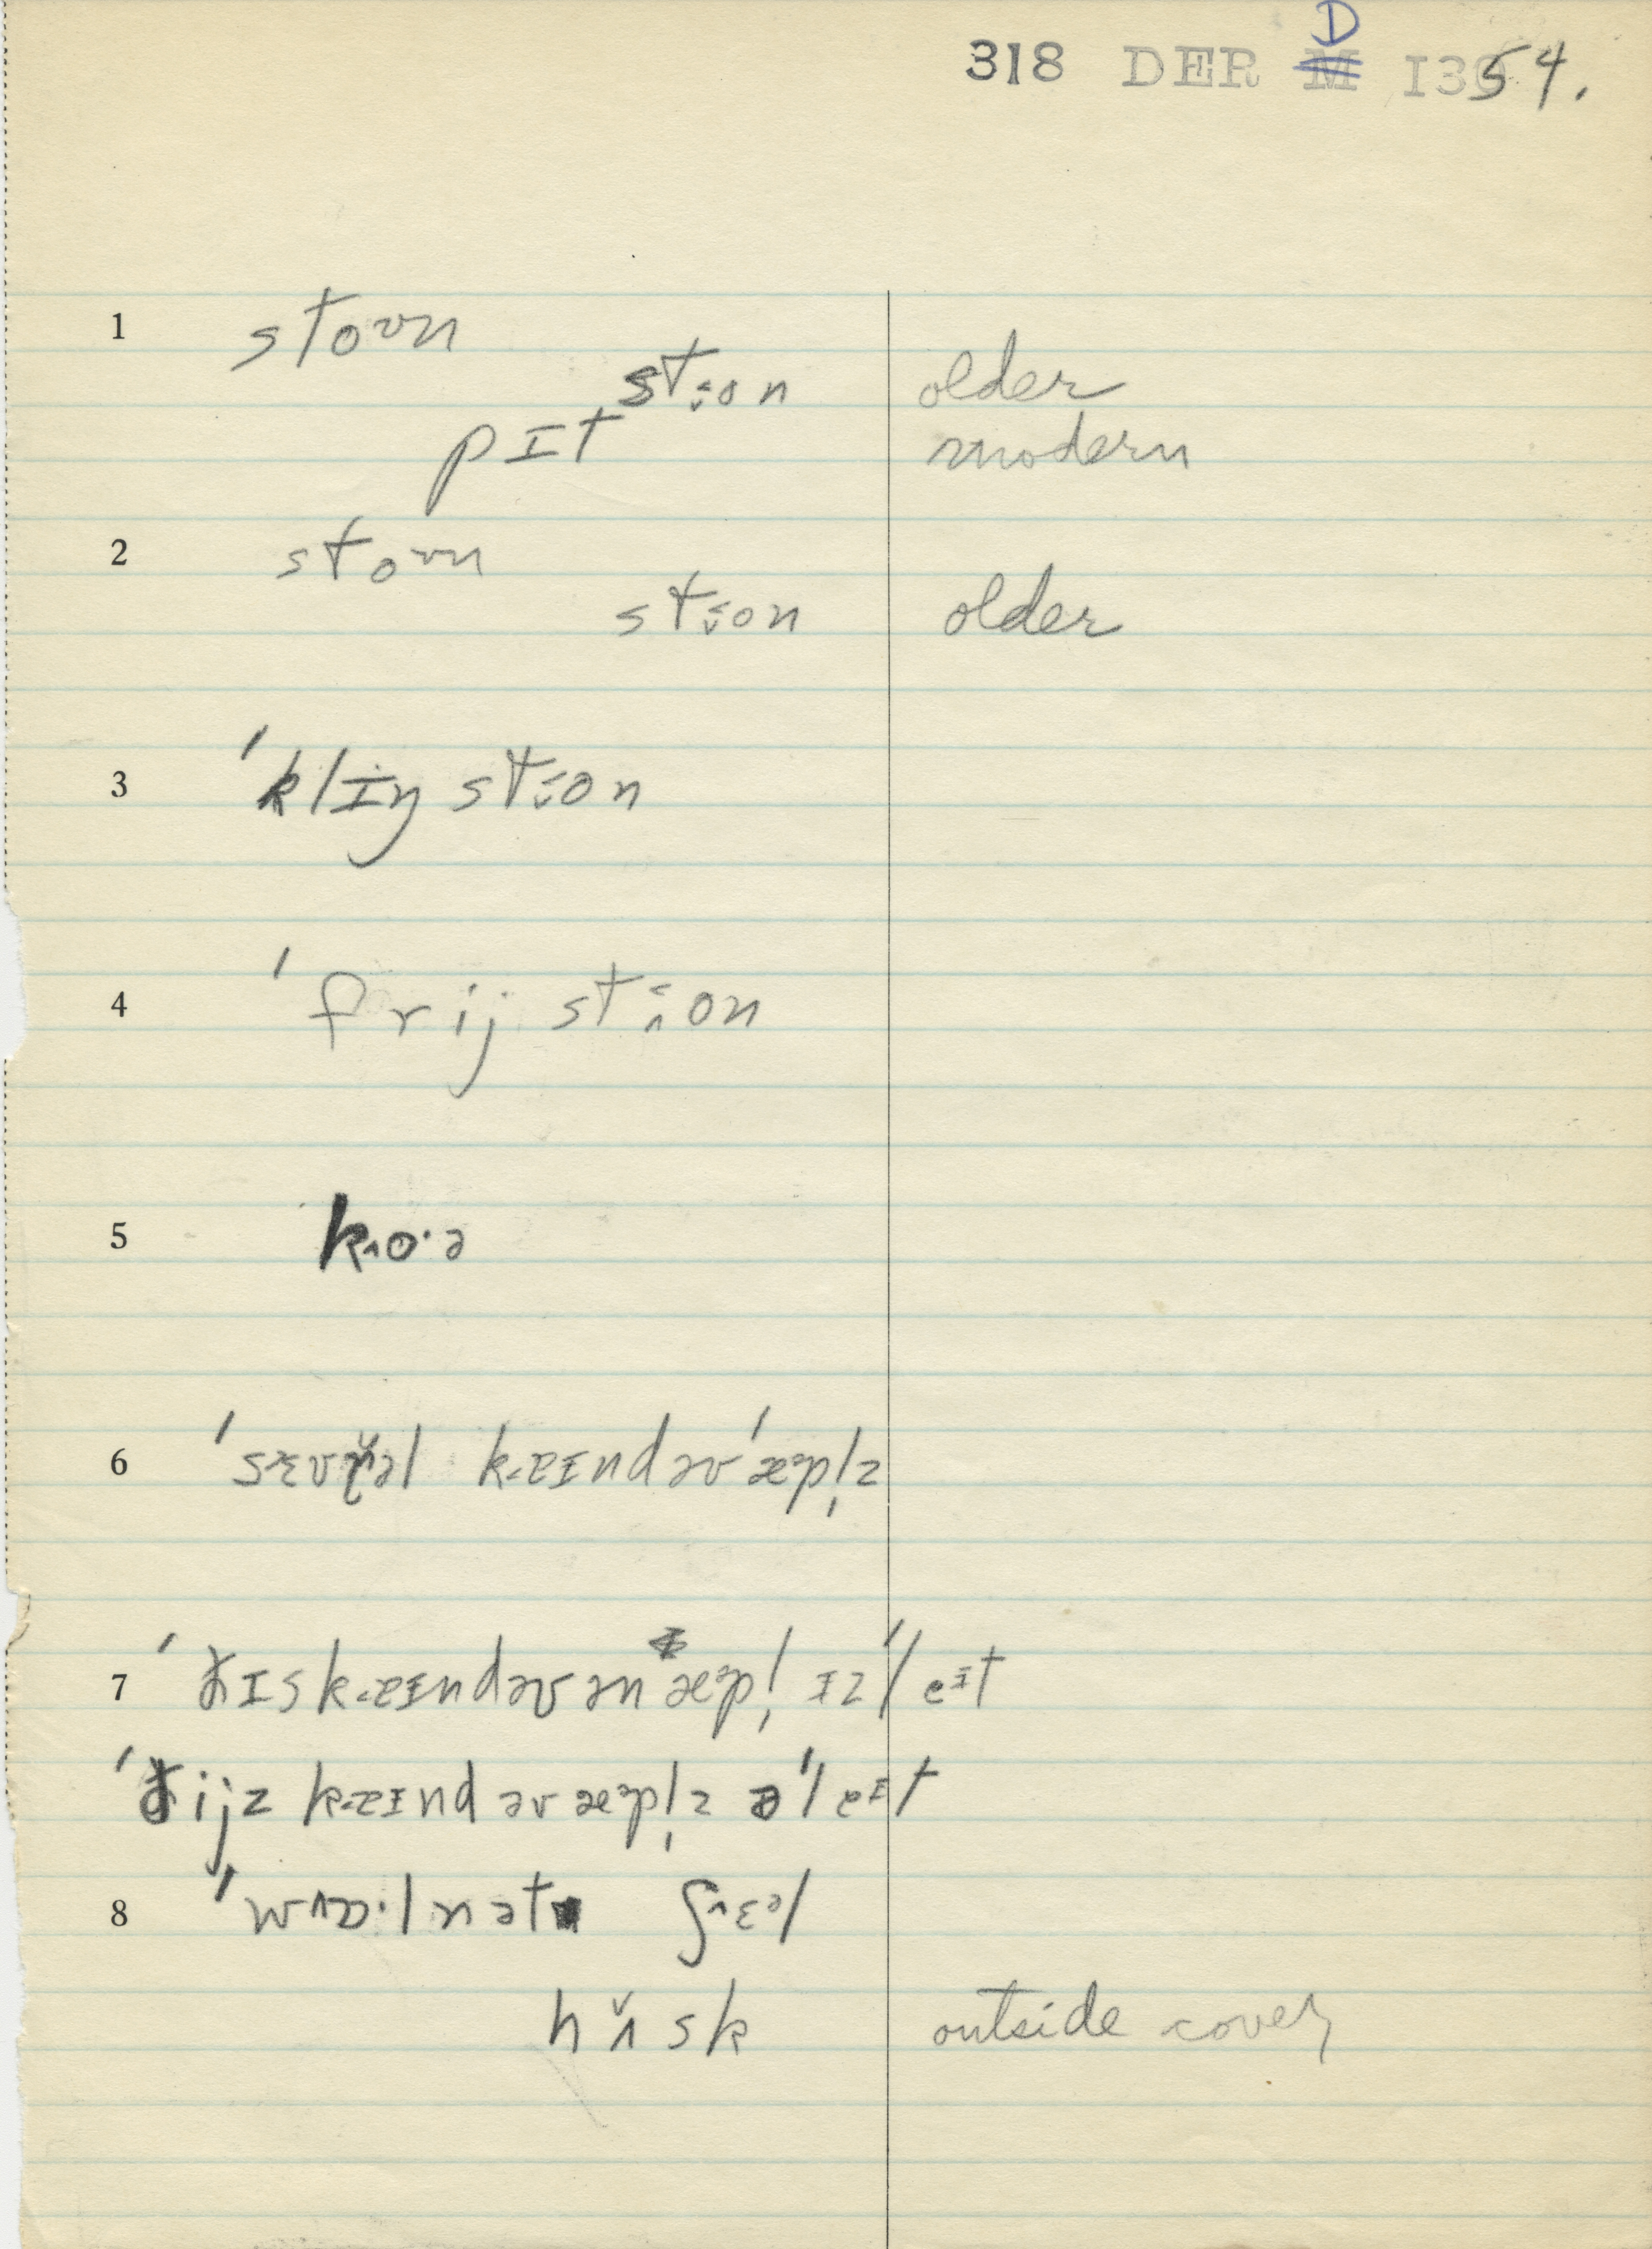 318 DER D I3054.
1 stoʊn
st‹on older
pɪt modern
2 stoʊn
st‹on older
3 ˈklɪŋ st‹on
4 ˈfrij st‹on
5 k˄o·ə
6 ˈsɛvr̆əl kæɪnd əv ˈæᵊpl̩z
7 ˈðɪs kæɪnd əv ən æᵊpl̩ ɪz ˈleɪt
ˈðijz kæɪnd əv æᵊpl̩z ə ˈleɪt
8 ˈwɒ·lnət ʃ˄ɛᵊl
hʌ̆sk outside cover